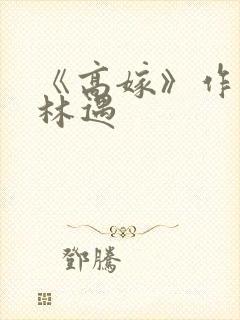 《高嫁》作
林遇
鄧騰